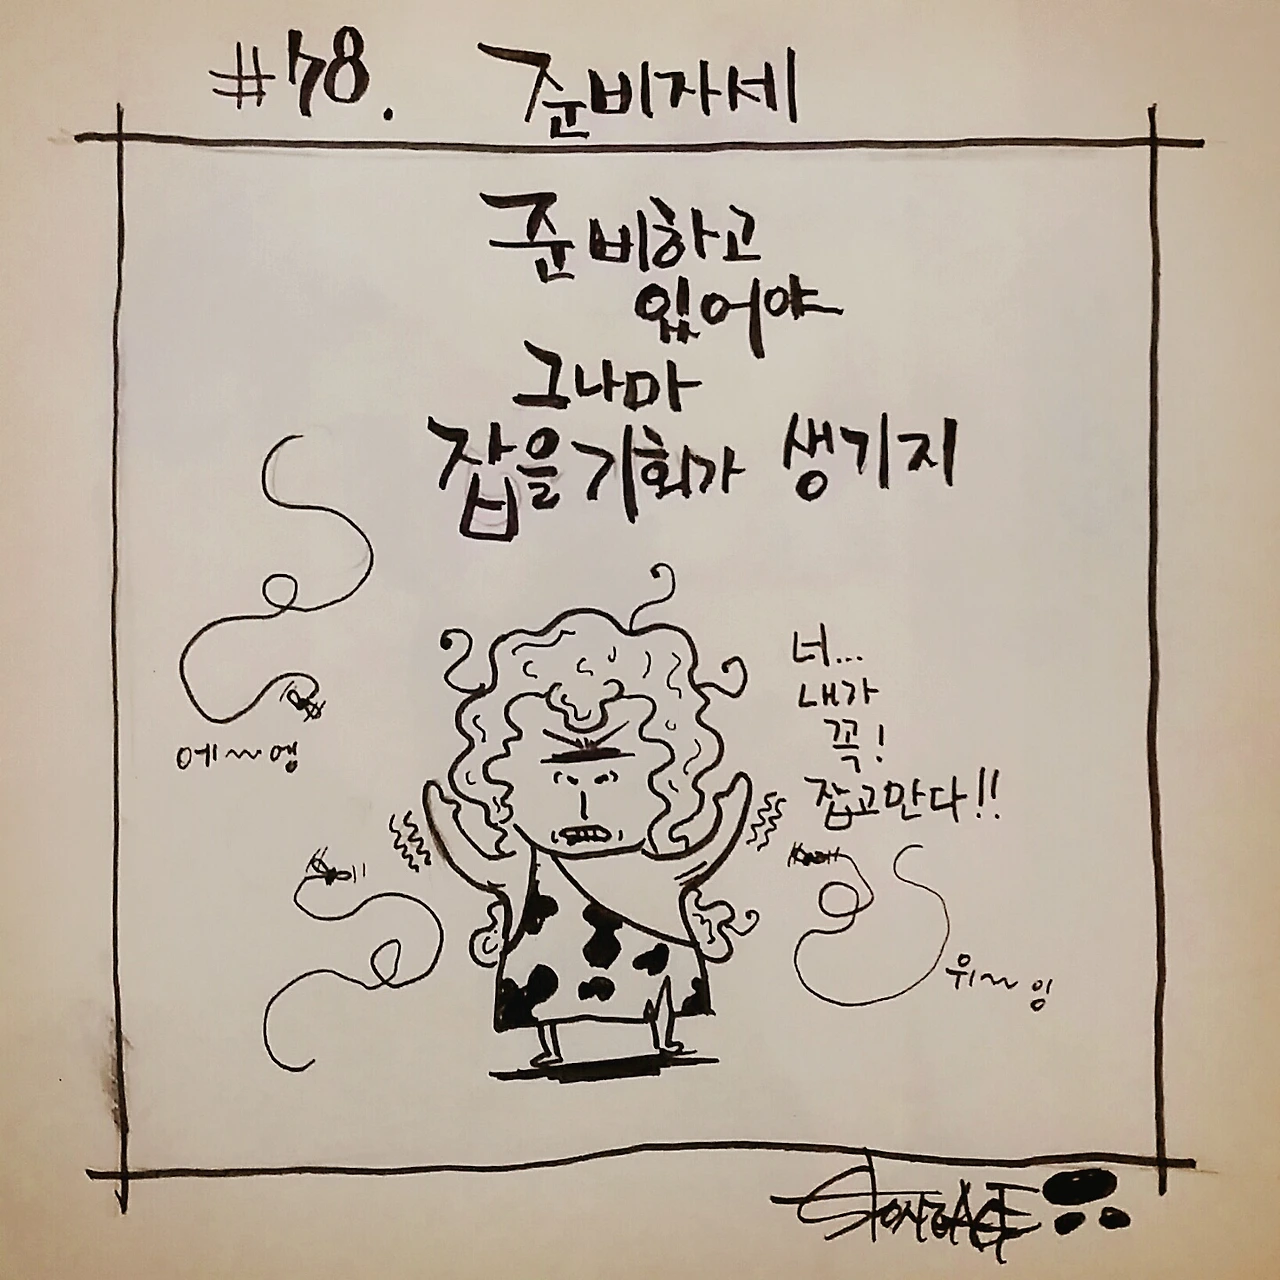 #78. 준비자세
준비하고
있어야
그나마
잡을 기회가 생기지
너...
내가
꼭!
잡고만다!!
에~~엥
위~~잉
STONEAGE